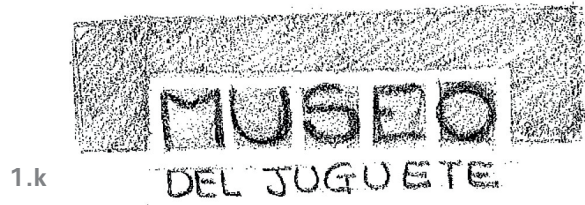 MUSEO
DEL JUGUETE
1.k